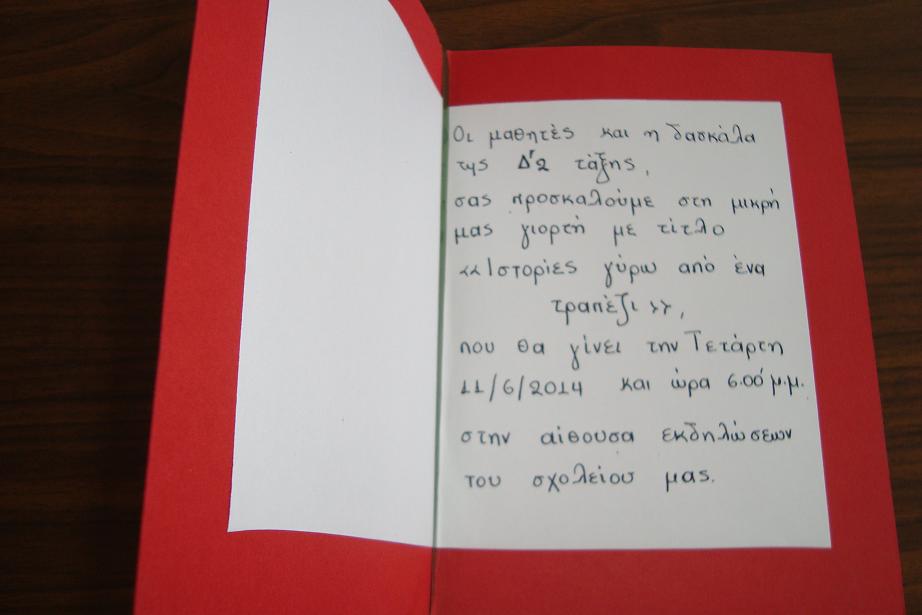 Οι μαθητές και η δασκάλα
της Δ'2 τάξης,
σας προσκαλούμε στη μικρή
μας γιορτή με τίτλο
<<Ιστορίες γύρω από ένα
τραπέζι>>,
που θα γίνει την Τετάρτη
11/6/2014 και ώρα 6.00 μ.μ.
στην αίθουσα εκδηλώσεων
του σχολείου μας.